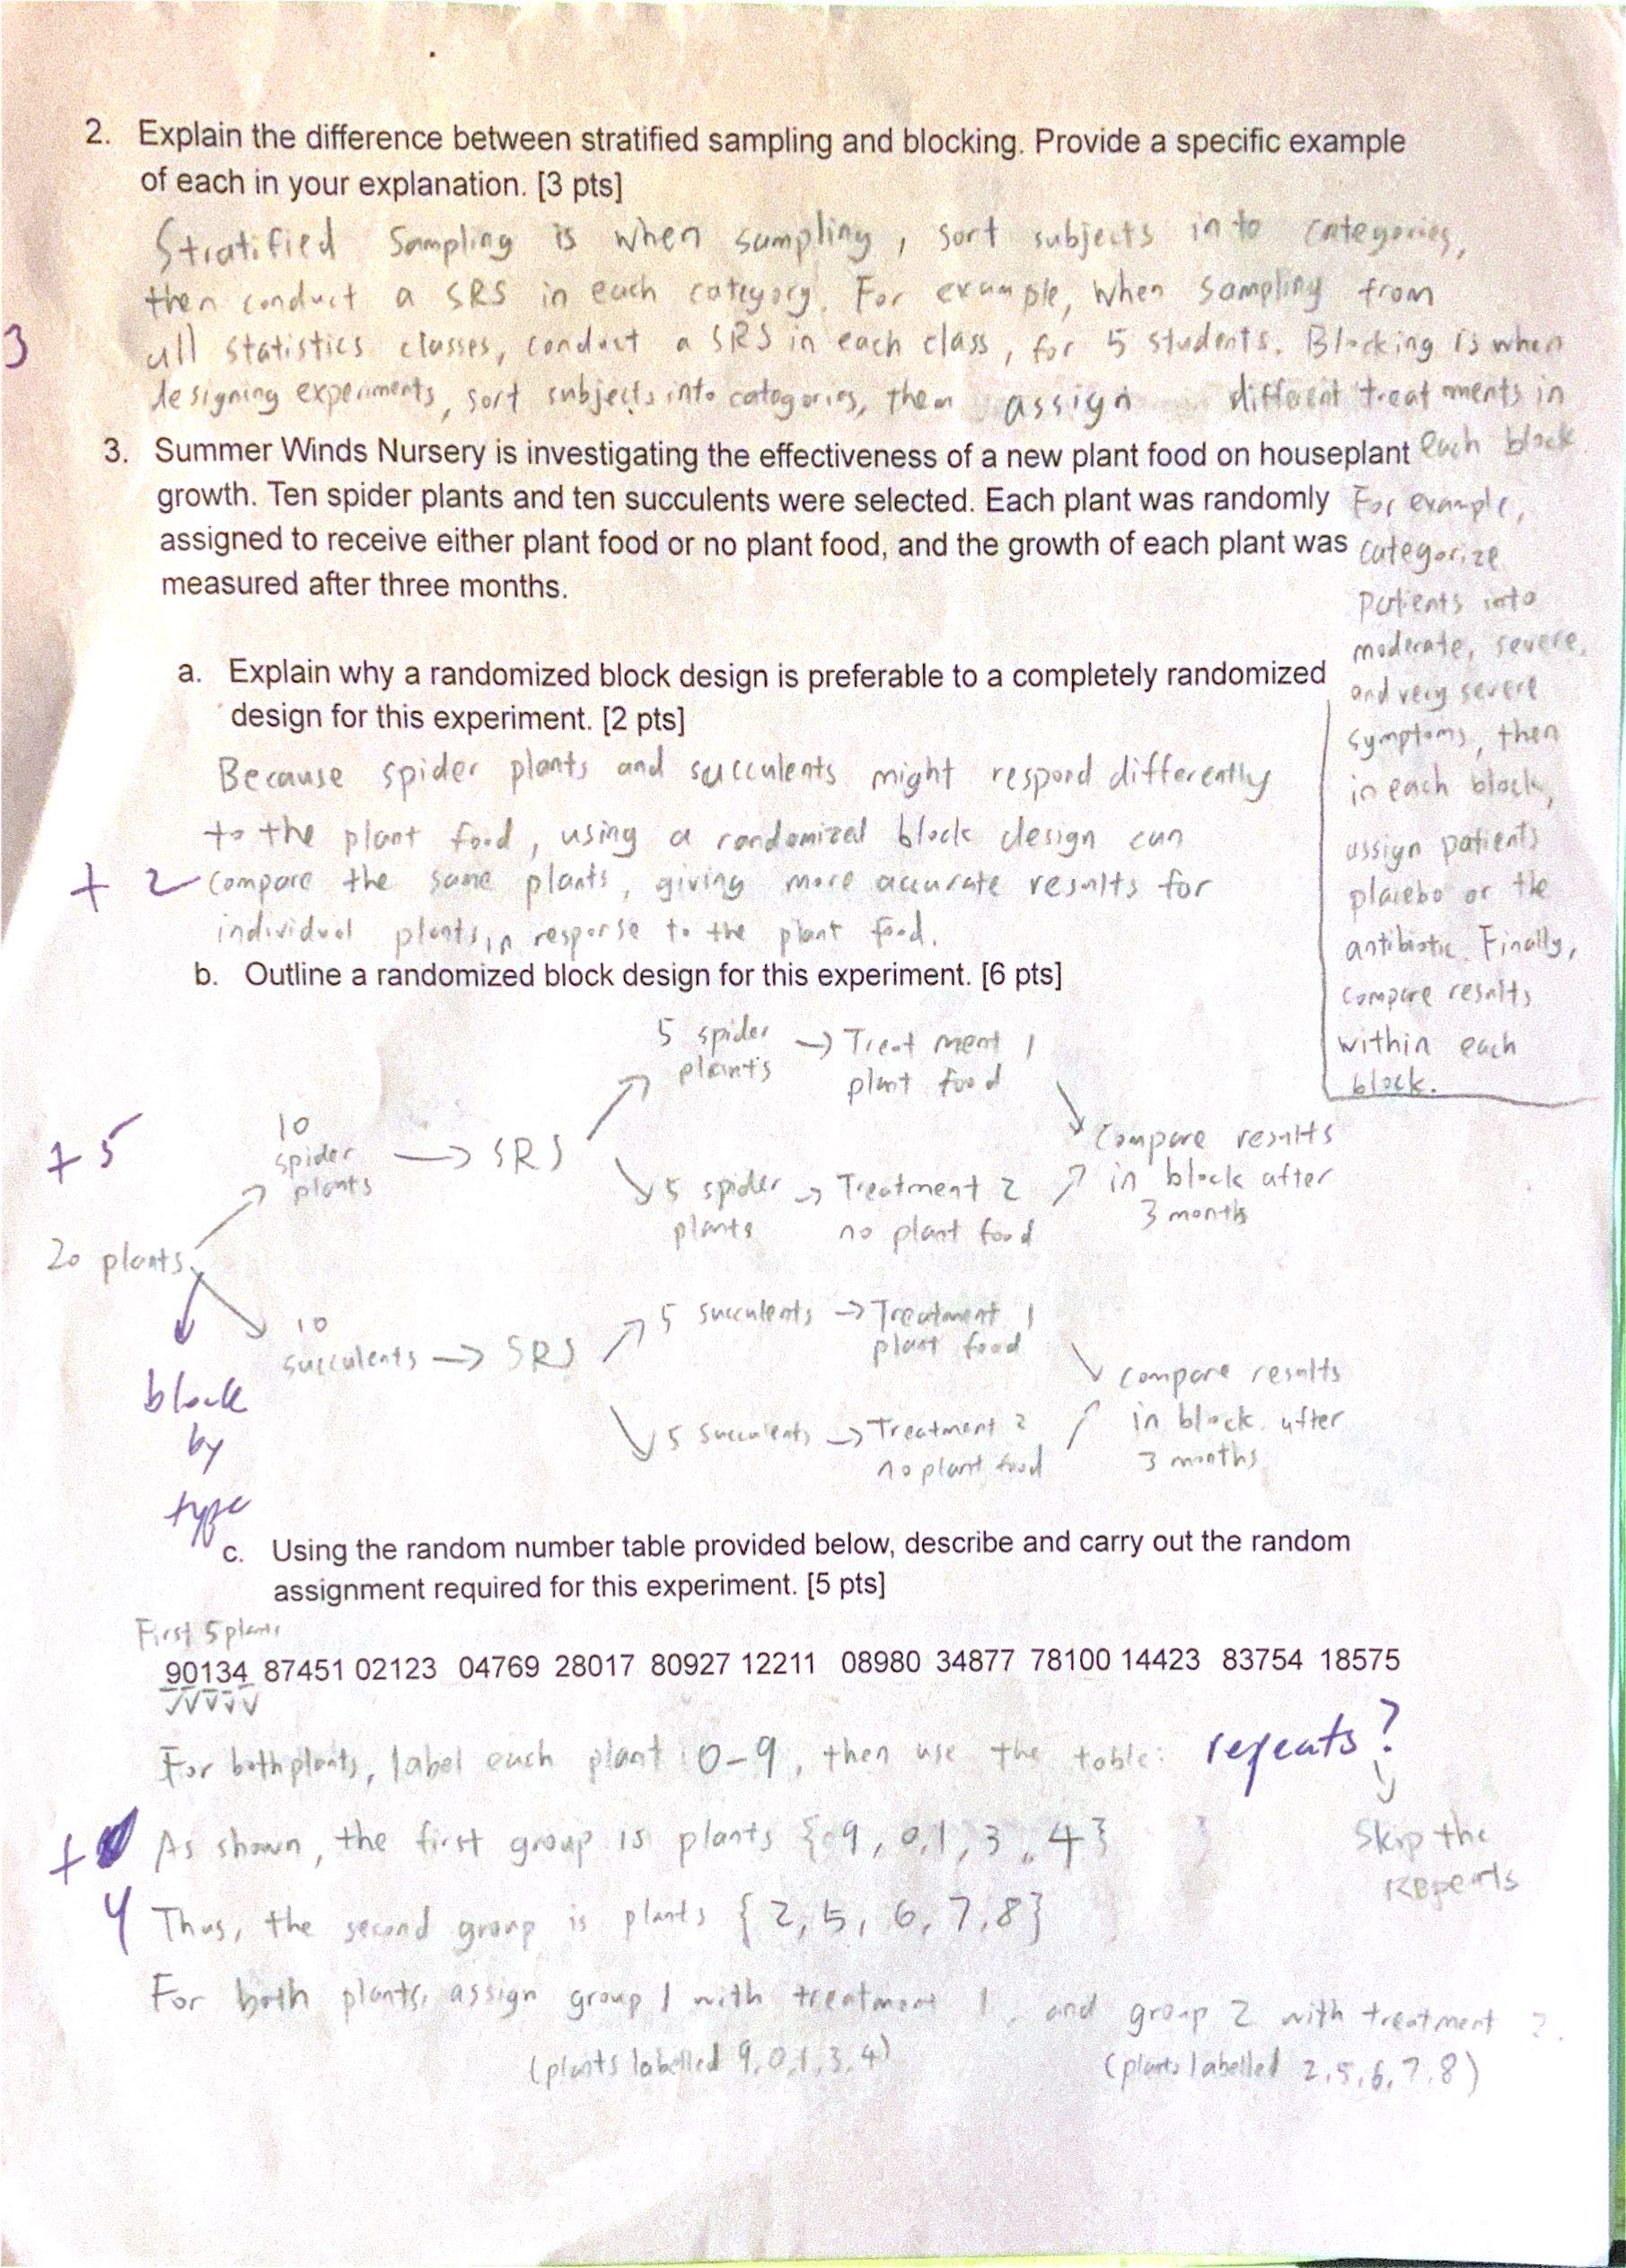 2. Explain the difference between stratified sampling and blocking. Provide a specific example
of each in your explanation. [3 pts]
Stratified Sampling is when sampling, sort subjects into categories,
then conduct a SRS in each category. For example, when sampling from
3
all statistics classes, conduct a SRS in each class, for 5 students. Blocking is when
designing experiments, sort subjects into categories, then assign different treatments in
each block.
For example,
categorize
patients into
moderate, severe,
and very severe
symptoms, then
in each block,
assign patients
placebo or the
antibiotic. Finally,
compare results
within each
block.
3. Summer Winds Nursery is investigating the effectiveness of a new plant food on houseplant
growth. Ten spider plants and ten succulents were selected. Each plant was randomly
assigned to receive either plant food or no plant food, and the growth of each plant was
measured after three months.
a. Explain why a randomized block design is preferable to a completely randomized
design for this experiment. [2 pts]
Because spider plants and succulents might respond differently
to the plant food, using a randomized block design can
+2
compare the same plants, giving more accurate results for
individual plants in response to the plant food.
b. Outline a randomized block design for this experiment. [6 pts]
+5
20 plants
block
by
type
10
spider
plants
→ SRS
5 spider
plants
→ Treatment 1
plant food
5 spider
plants
→ Treatment 2
no plant food
Compare results
in block after
3 months
10
succulents → SRS
5 succulents → Treatment 1
plant food
5 succulents → Treatment 2
no plant food
compare results
in block after
3 months
c. Using the random number table provided below, describe and carry out the random
assignment required for this experiment. [5 pts]
First 5 plants
90134 87451 02123 04769 28017 80927 12211 08980 34877 78100 14423 83754 18575
For both plants, label each plant 0-9, then use the table:
repeats?
Skip the
repeats
+
4
As shown, the first group is plants {9, 0, 1, 3, 4}
Thus, the second group is plants {2, 5, 6, 7, 8}
For both plants, assign group 1 with treatment 1, and group 2 with treatment 2.
(plants labelled 9, 0, 1, 3, 4) (plants labelled 2, 5, 6, 7, 8)